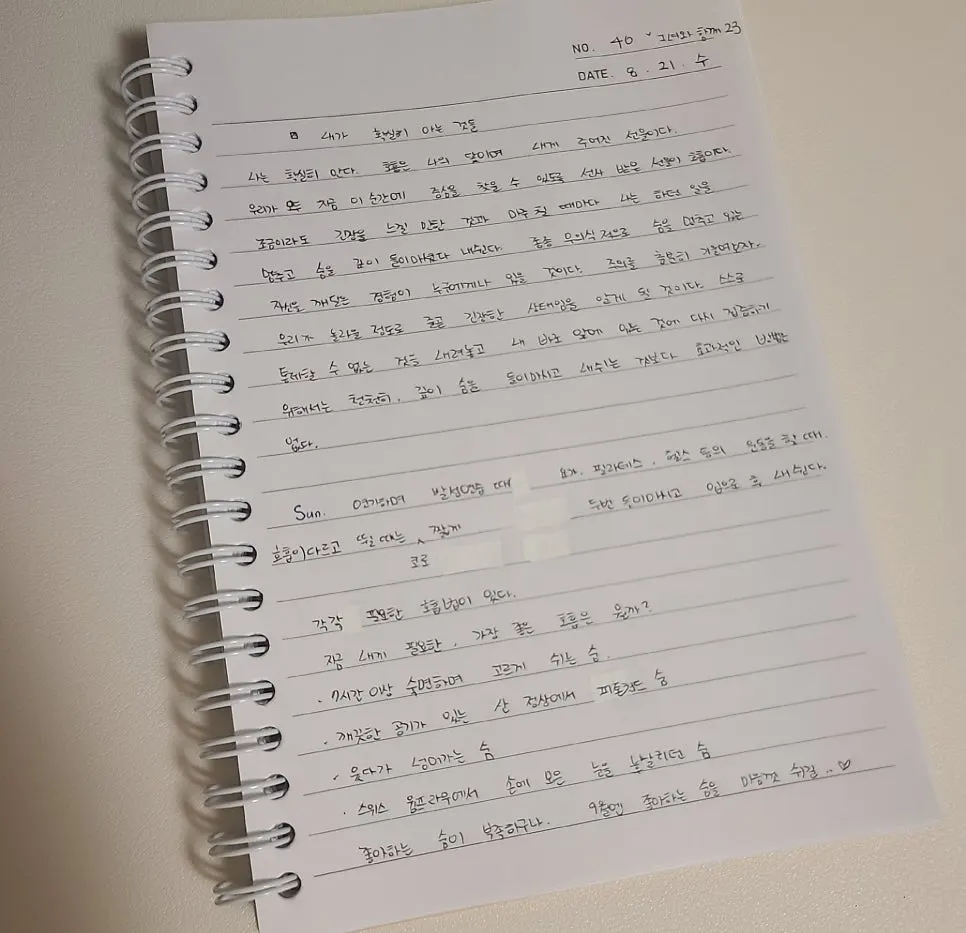 NO. 40 그녀와 함께 23
DATE. 8. 21. 수
내가 확실히 아는 것들
나는 확실히 안다. 호흡은 나의 닻이며 내게 주어진 선물이다.
우리가 지금 이 순간에 중심을 찾을 수 있도록 선사 받은 선물이 호흡이다.
조금이라도 긴장을 느낄 만한 것과 마주 칠 때마다 나는 하던 일을
멈추고 숨을 깊이 들이마셨다 내쉰다. 종종 무의식적으로 숨을 멈추고 있는
자신을 깨닫는 경험이 누구에게나 있을 것이다. 주의를 충분히 기울여보자.
우리가 놀라울 정도로 줄곧 긴장한 상태임을 알게 될 것이다. 스스로
통제할 수 없는 것들 내려놓고 내 바로 앞에 있는 것에 다시 집중하기
위해서는 천천히, 깊이 숨을 들이마시고 내쉬는 것보다 효과적인 방법은
없다.
Sun. 연기하며 발성연습 때 요가, 필라테스, 헬스 등의 운동을 할 때.
호흡이 다르고 뛸 때는 짧게 두번 들이마시고 입으로 훅 내쉰다.
코로
각각 필요한 호흡법이 있다.
지금 내게 필요한, 가장 좋은 호흡은 뭘까?
· 7시간 이상 숙면하며 고르게 쉬는 숨.
· 깨끗한 공기가 있는 산 정상에서 피톤치드 숨
· 웃다가 넘어가는 숨
· 스위스 융프라우에서 손에 모은 눈을 흩날리던 숨
좋아하는 숨이 부족하구나. 9월엔 좋아하는 숨을 마음껏 쉬길.. ♡